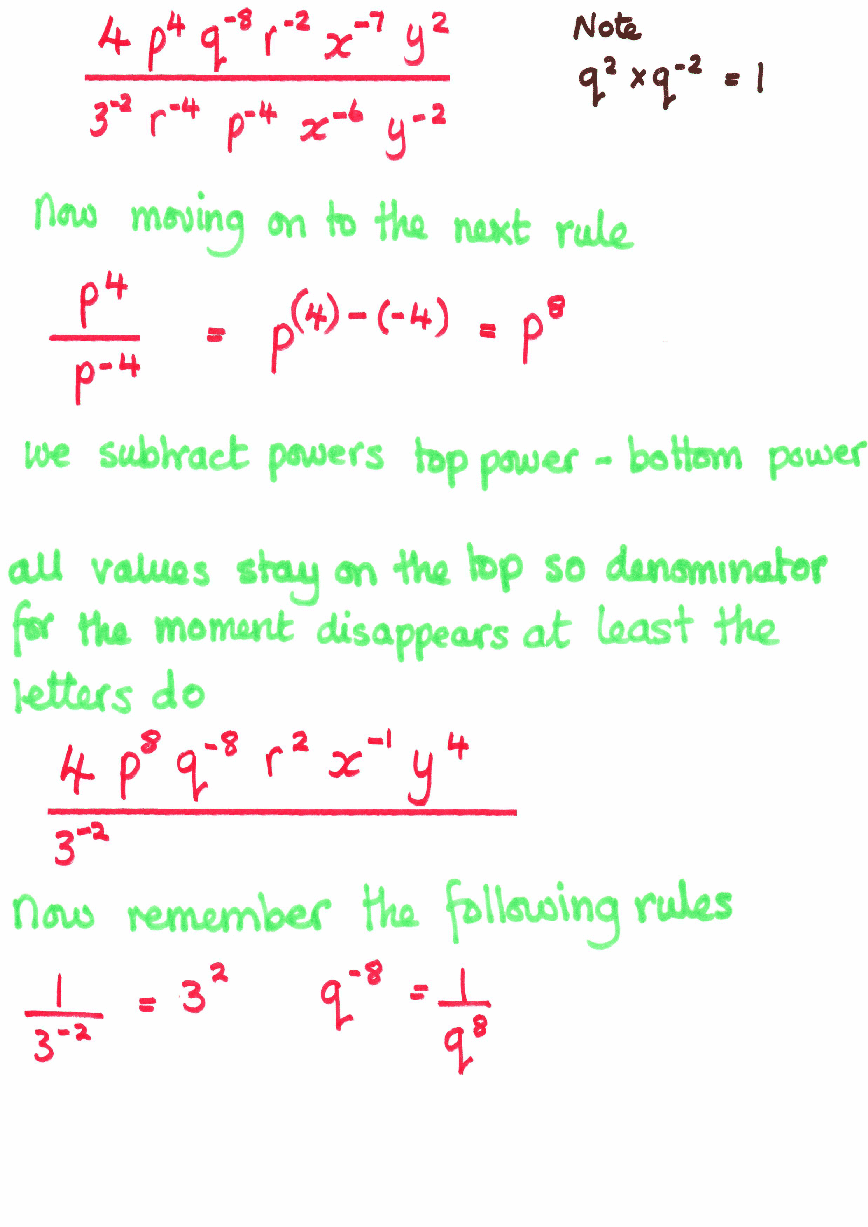 4 p⁴ q⁻⁸ r⁻² x⁻⁷ y²
3⁻² r⁻⁴ p⁻⁴ x⁻⁶ y⁻²
Note
q² × q⁻² = 1
Now moving on to the next rule
p⁴ / p⁻⁴ = p⁽⁴⁾⁻⁽⁻⁴⁾ = p⁸
we subtract powers top power - bottom power
all values stay on the top so denominator
for the moment disappears at least the
letters do
4 p⁸ q⁻⁸ r² x⁻¹ y⁴
3⁻²
Now remember the following rules
1 / 3⁻² = 3² q⁻⁸ = 1 / q⁸